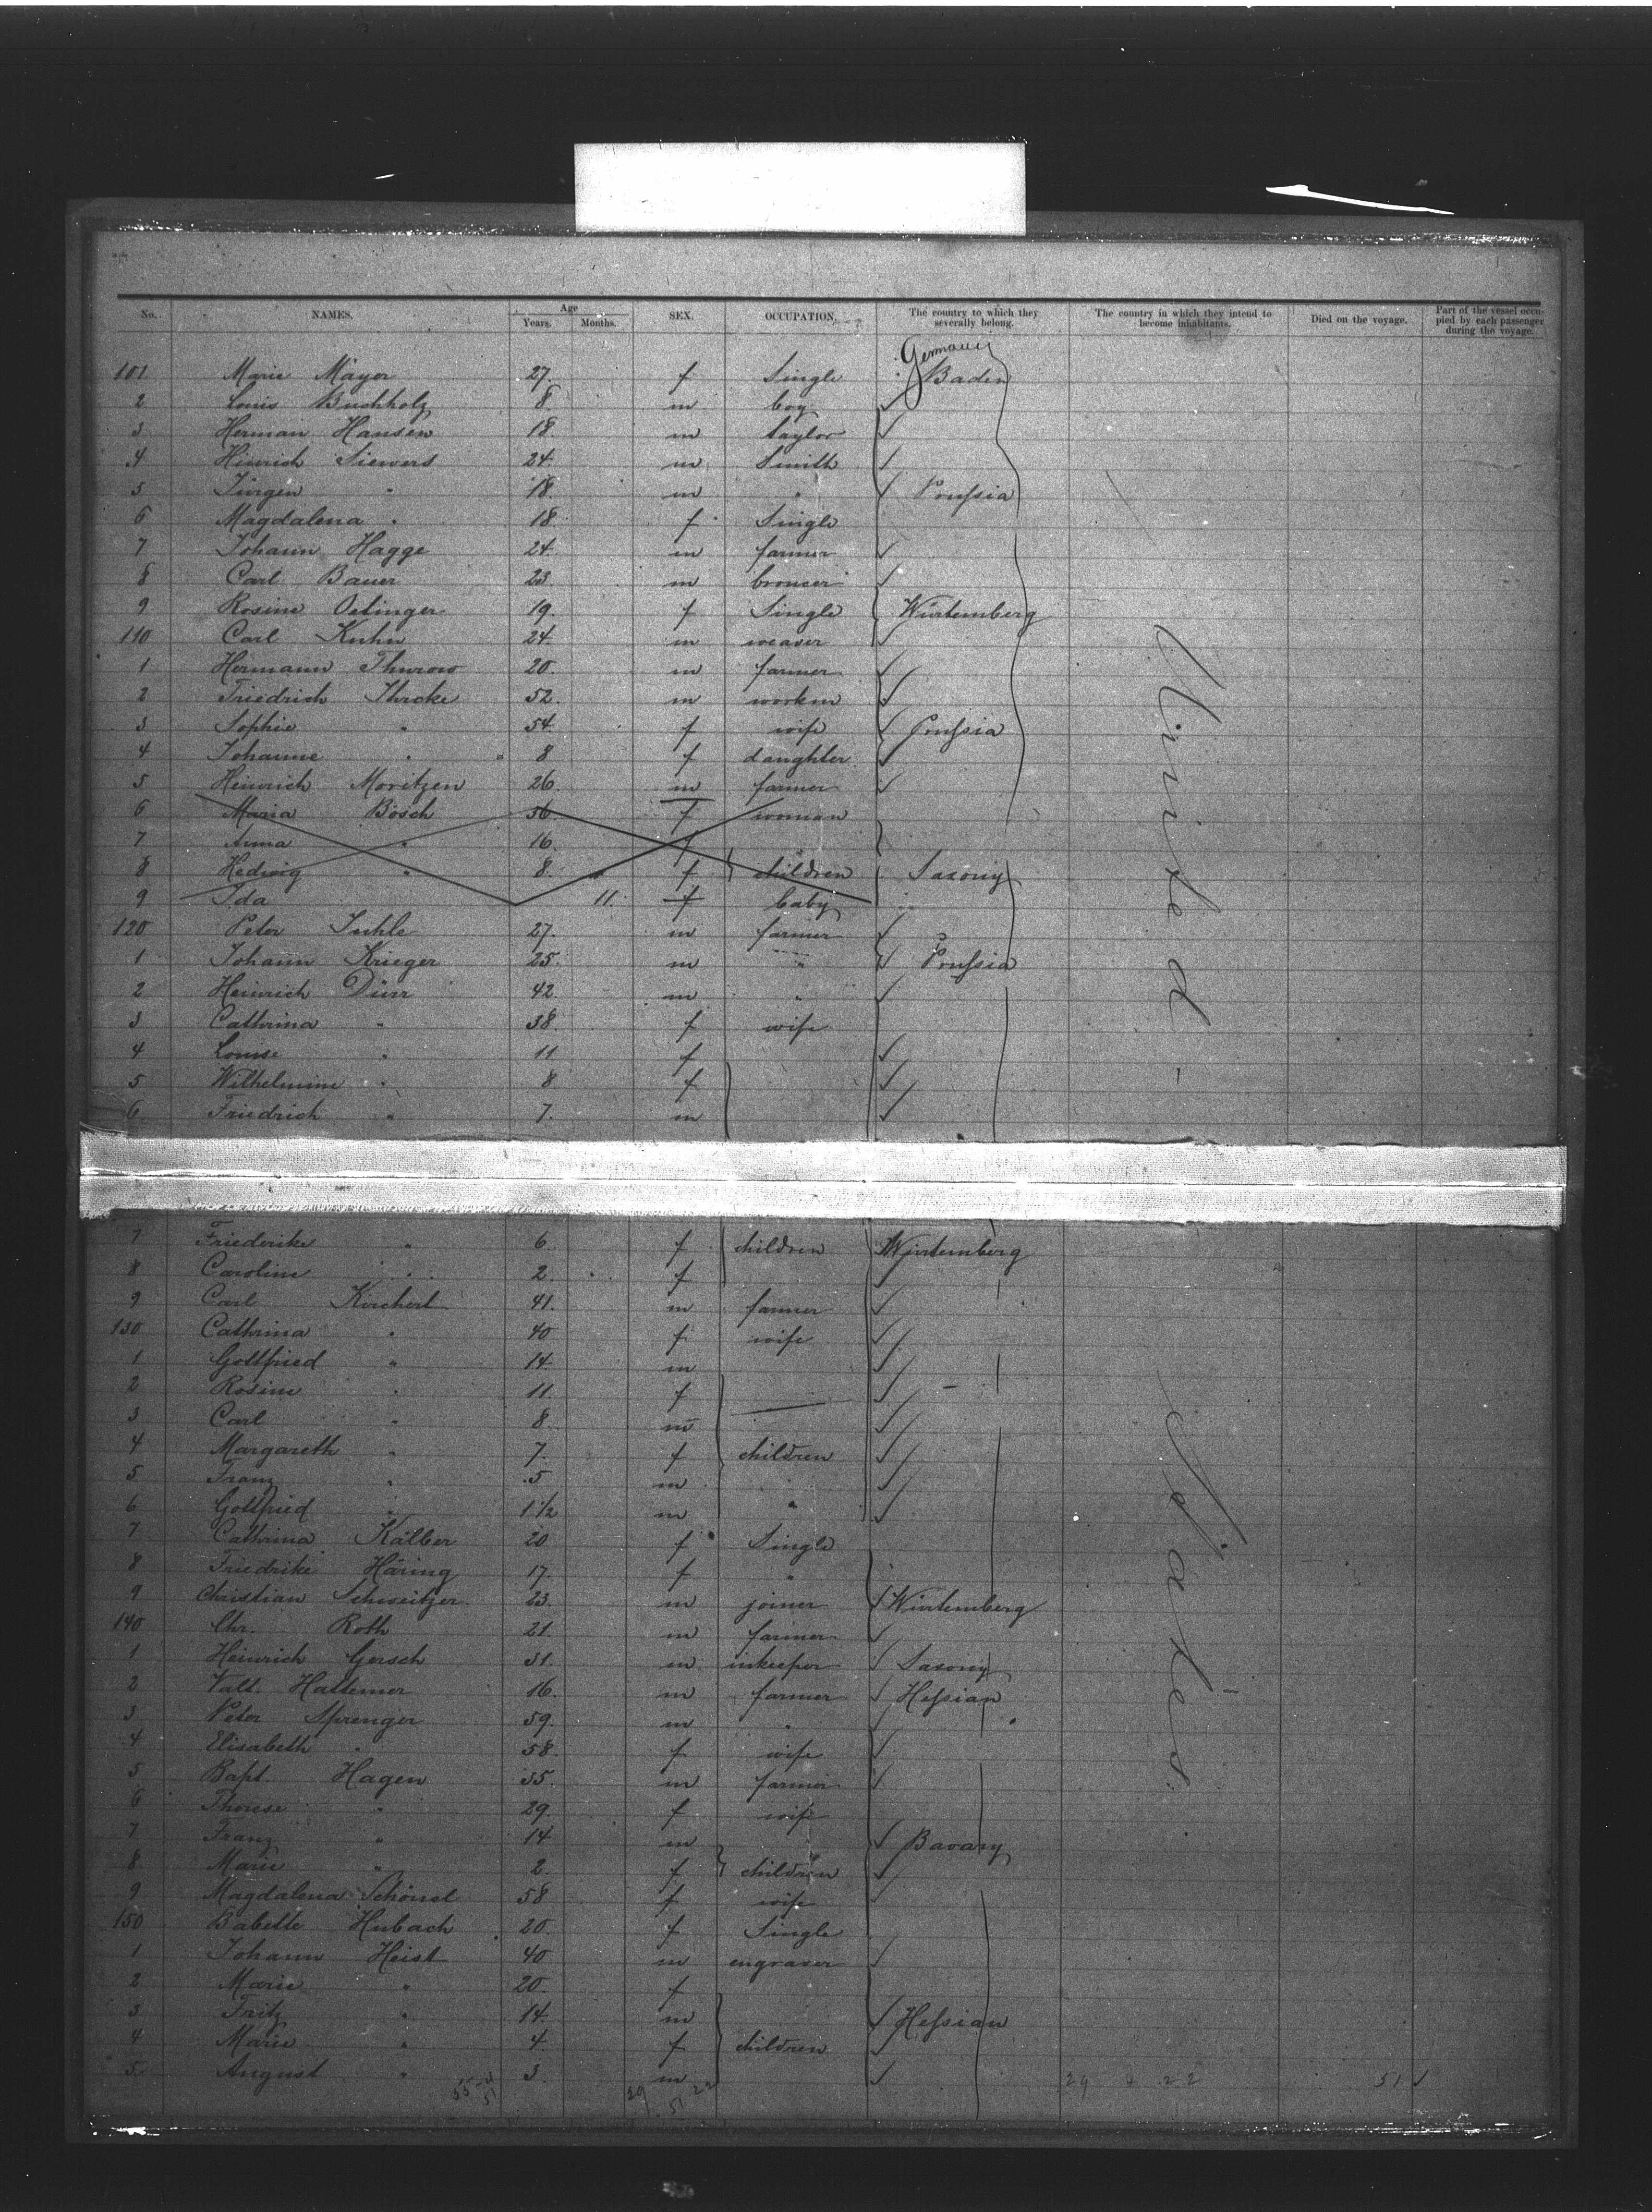 No. NAMES. Age Years. Months. SEX. OCCUPATION. The country to which they severally belong. The country in which they intend to become inhabitants. Died on the voyage. Part of the vessel occupied by each passenger during the voyage.
Germany
101 Marie Mayer 27. f Single Baden
2 Louis Buchholz 8 m boy
3 Herman Hansen 18. m taylor
4 Hinrich Siewers 24. m Smith
5 Jürgen " 18. m " Prussia
6 Magdalena " 18. f Single
7 Johann Hagge 24. m farmer
8 Carl Bauer 23 m broncer
9 Rosine Oetinger 19. f Single Würtemberg
110 Carl Kuhn 24 m weaver
1 Hermann Thurow 20. m farmer
2 Friedrich 52. m workm
3 Sophie " 54. f wife Prussia
4 Johanne " 8 f daughter
5 Heinrich Moritzen 26 m farmer
6 Maria Bösch 56 f woman
7 Anna " 16. f
8 Hedwig " 8. f children Saxony
9 Ida 11. f baby
120 Peter 27. m farmer
1 Johann Krieger 25. m " Prussia
2 Heinrich Dürr 42. m "
3 Cathrina " 38 f wife
4 Louise " 11 f
5 Wilhelmine " 8 f
6 Friedrich " 7. m
7 Friederike " 6 f children Würtemberg
8 Caroline " 2. f
9 Carl Kirchert 41. m farmer
130 Cathrina " 40 f wife
1 Gottfried " 14. m
2 Rosine " 11. f
3 Carl " 8. m
4 Margareth " 7. f children
5 Franz " 5 m
6 Gottfried " 1 1/2 m "
7 Cathrina Kälber 20 f Single
8 Friedrike Häring 17. f "
9 Christian Schweitzer 23. m joiner Würtemberg
140 Chr. Roth 21. m farmer
1 Heinrich Gersch 31. m inkeeper Saxony
2 Valt. Hattemer 16. m farmer Hessian
3 Peter Sprenger 59. m "
4 Elisabeth " 58. f wife
5 Bapt. Hagen 35. m farmer
6 Therese " 29. f wife
7 Franz " 14 m Bavary
8 Marie " 2. f children
9 Magdalena 58 f wife
150 Babette Hubach 20. f Single
1 Johann Heist 40 m engraver
2 Marie " 20. f
3 Fritz " 14. m Hessian
4 Marie " 4. f children
5 August " 3. m
United States
29 4 22 51
29 22
51